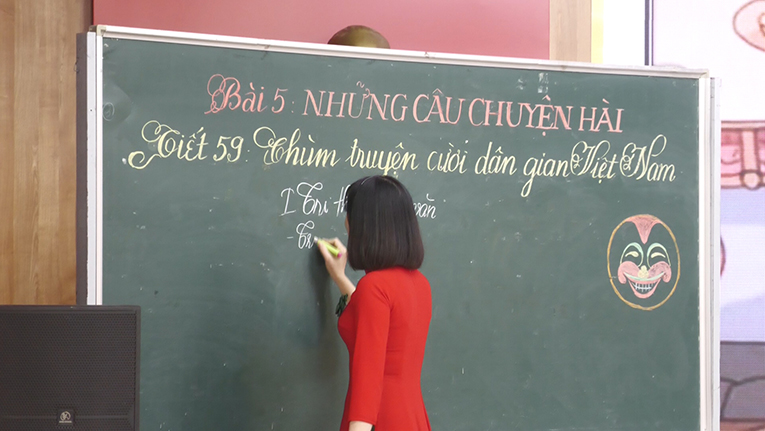 Bài 5: NHỮNG CÂU CHUYỆN HÀI
Tiết 59: Chùm truyện cười dân gian Việt Nam
I Tri văn
-